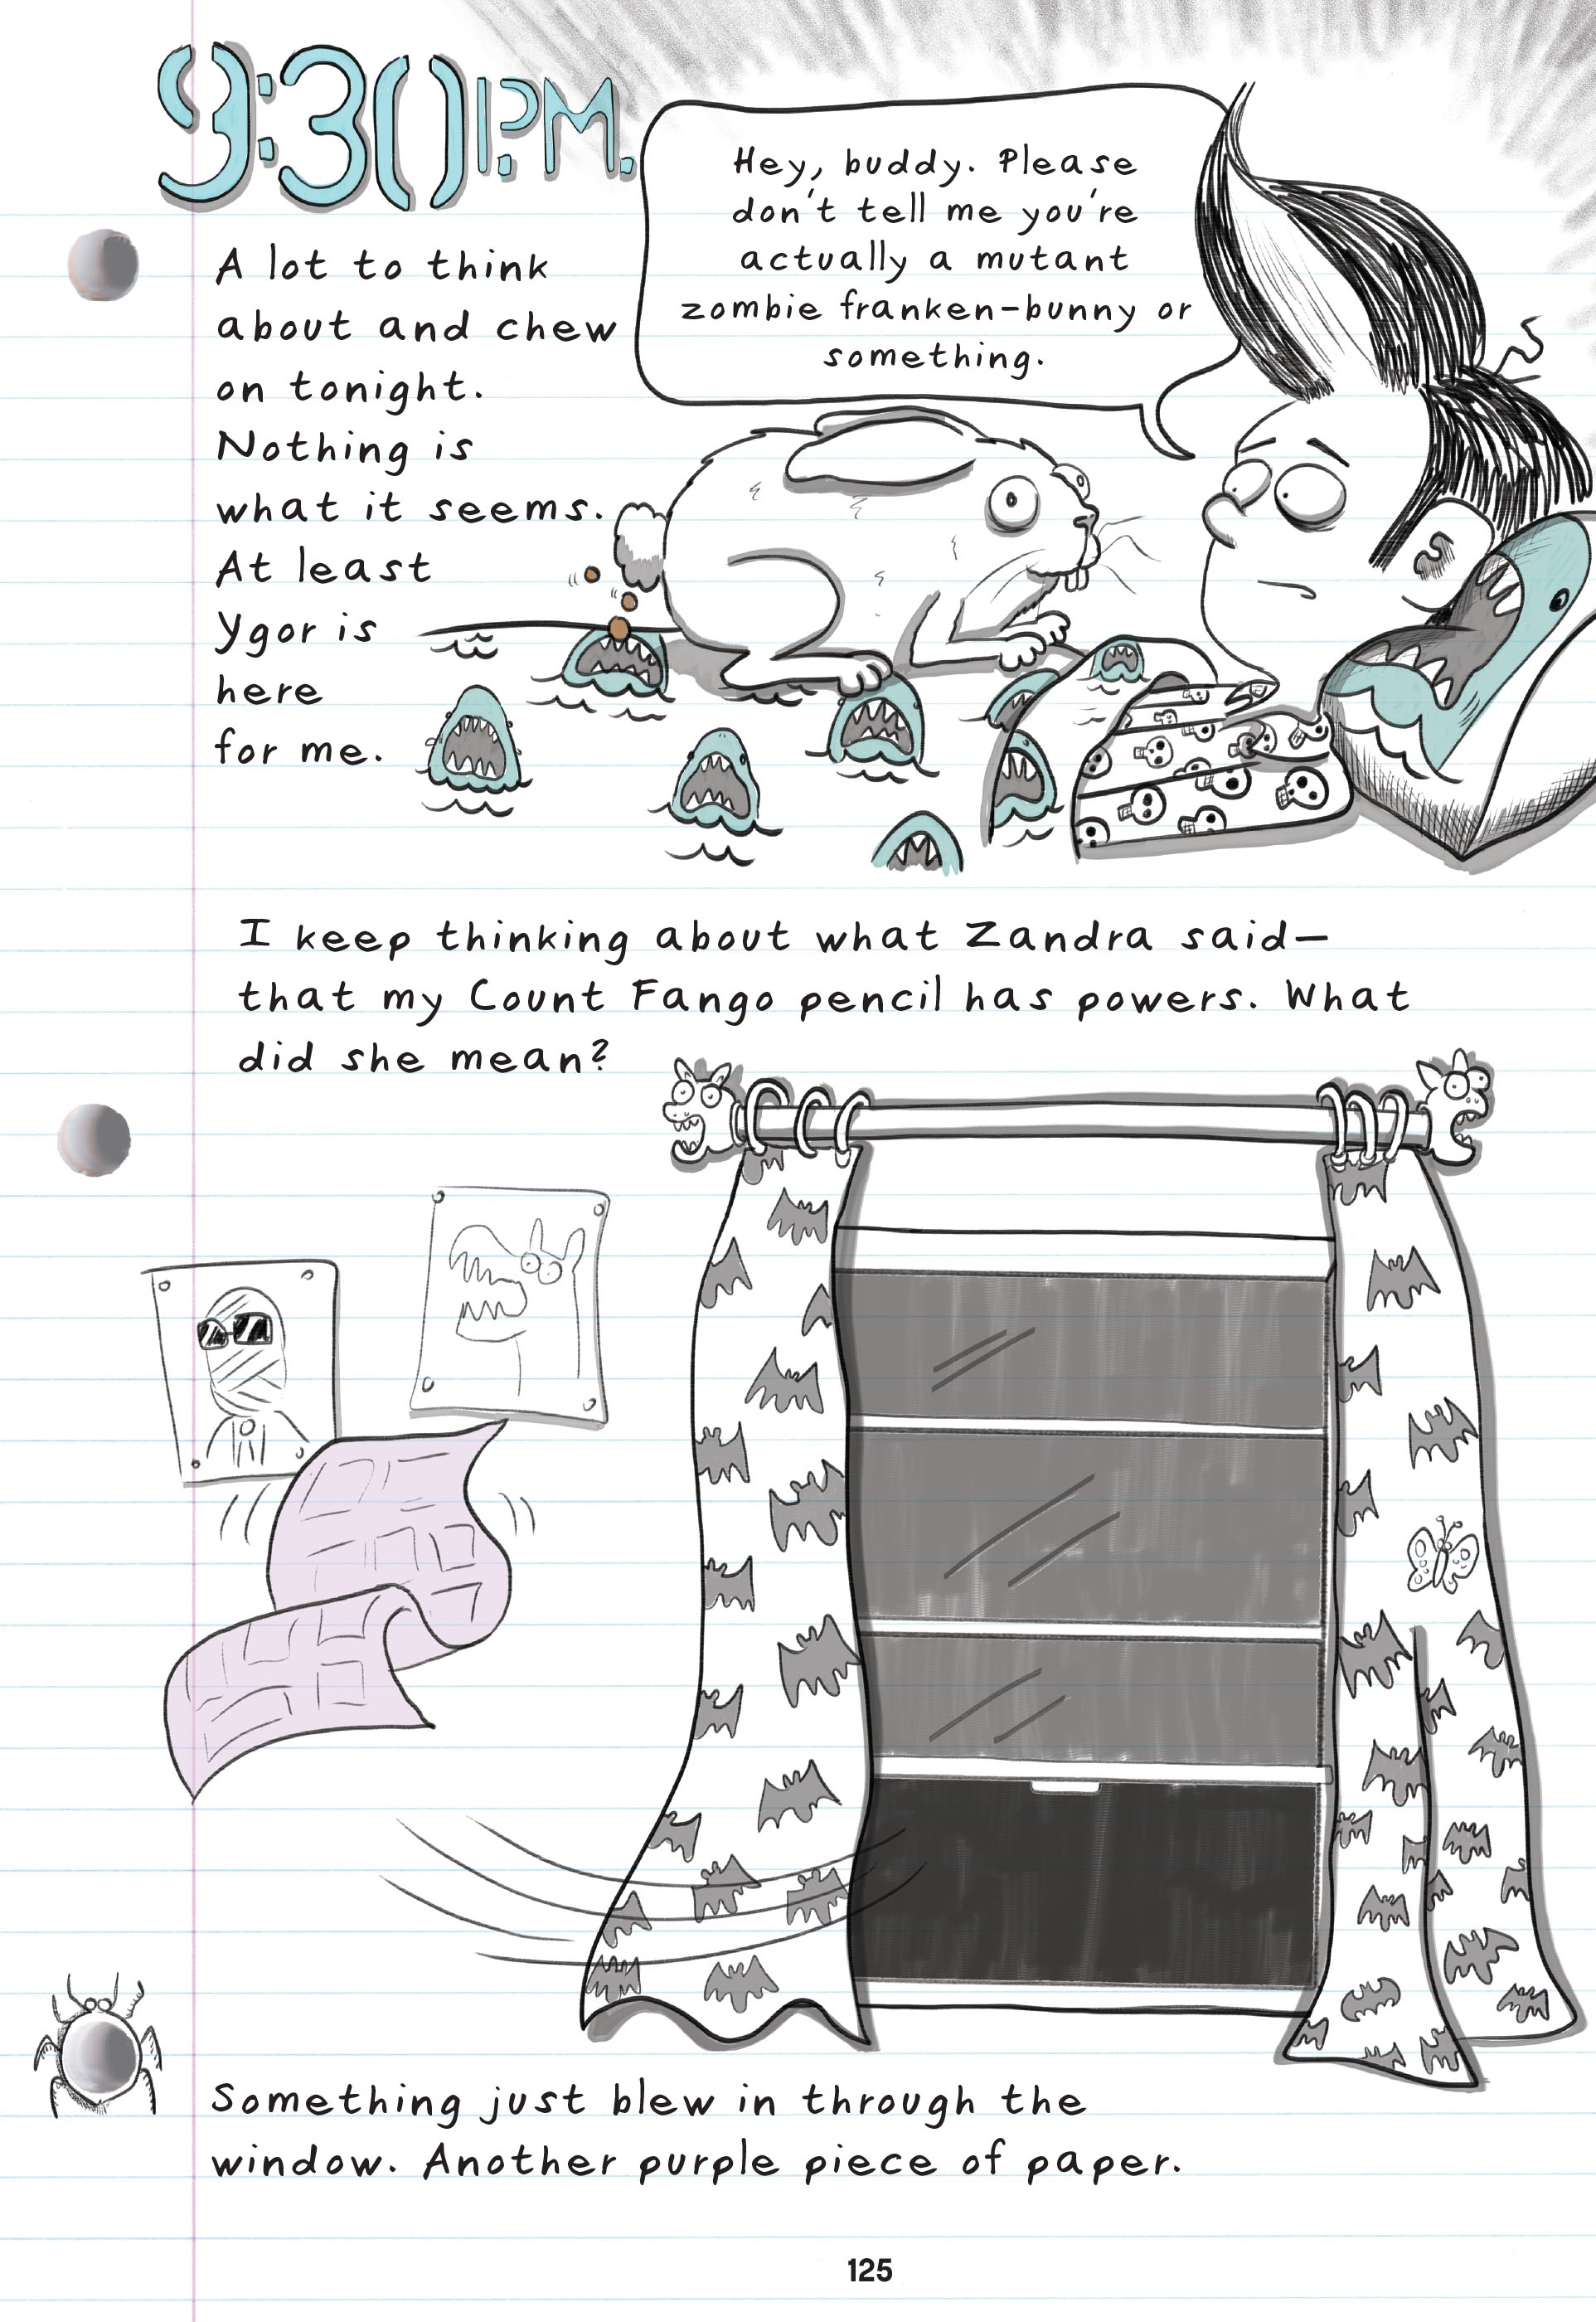 9:30 P.M.
A lot to think
about and chew
on tonight.
Nothing is
what it seems.
At least
Ygor is
here
for me.
Hey, buddy. Please
don't tell me you're
actually a mutant
zombie franken-bunny or
something.
I keep thinking about what Zandra said—
that my Count Fango pencil has powers. What
did she mean?
Something just blew in through the
window. Another purple piece of paper.
125